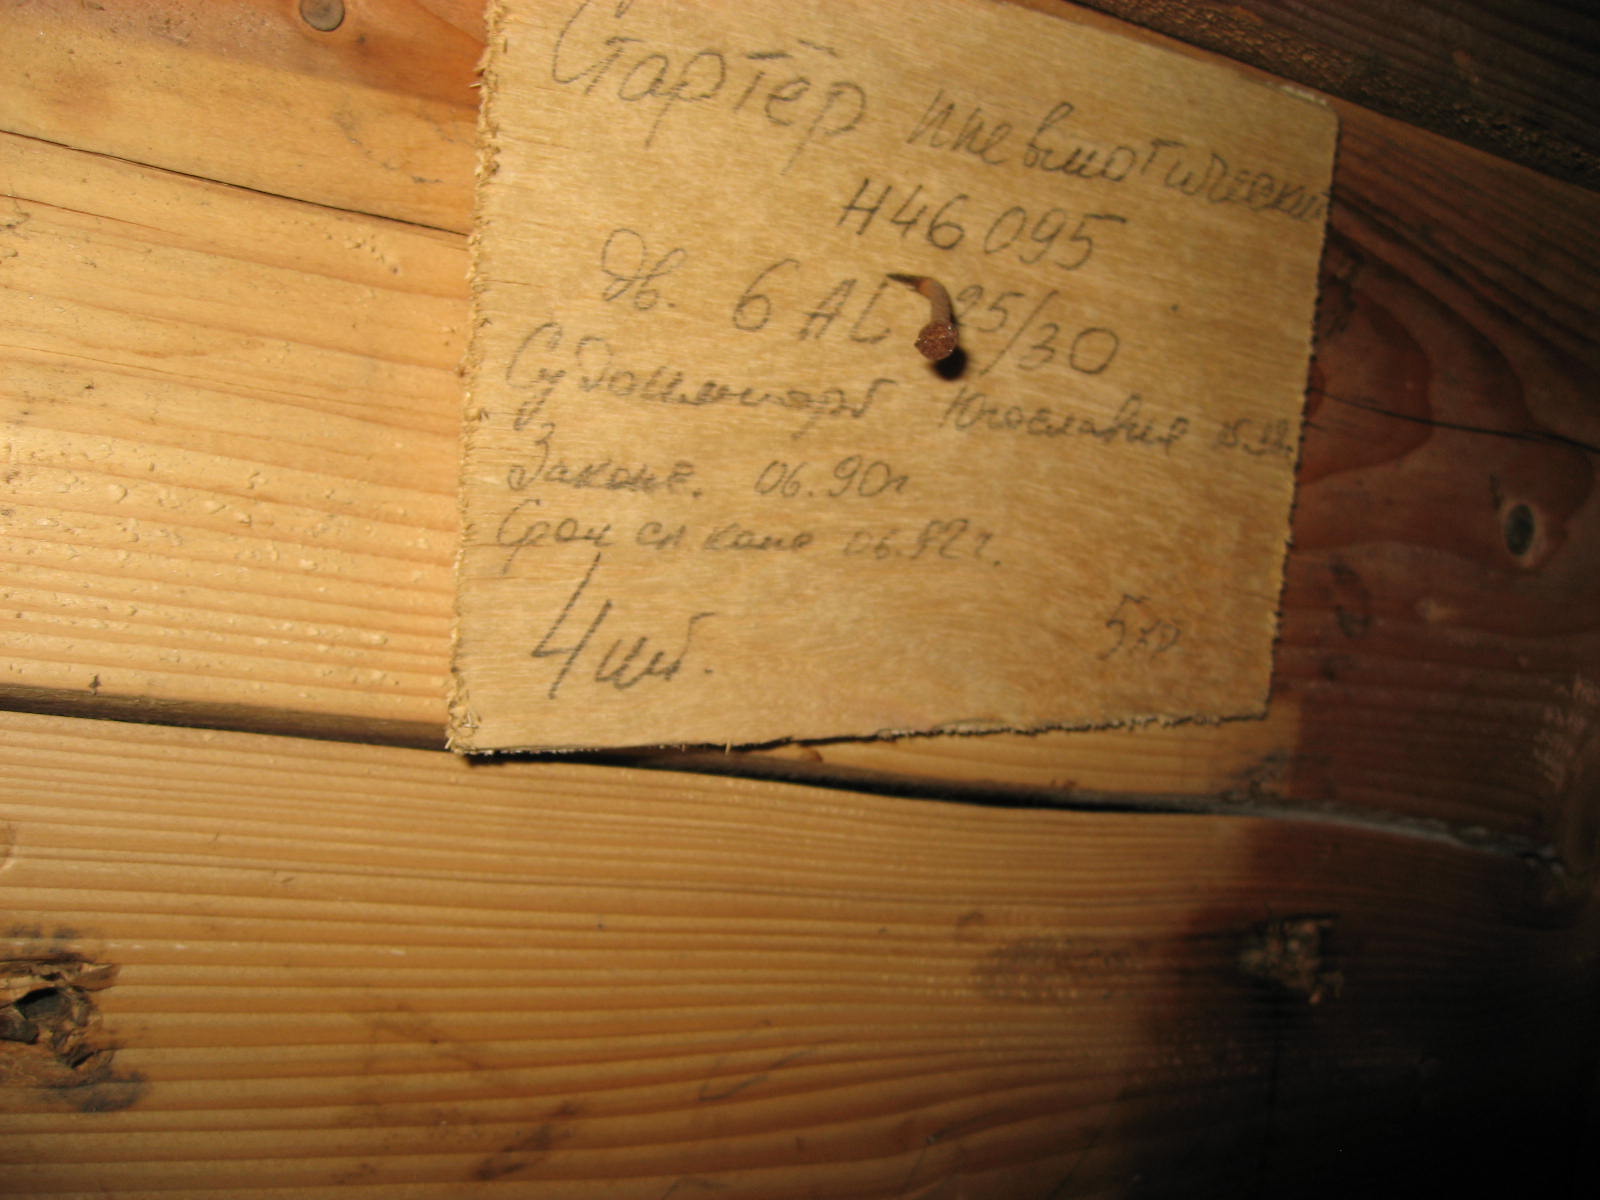 Стартёр пневматический
Н46 095
дв. 6 AL 25/30
Судоимпорт Югославия
Законс. 06.90г
Срок сл. конс 06.92г.
4 шт.